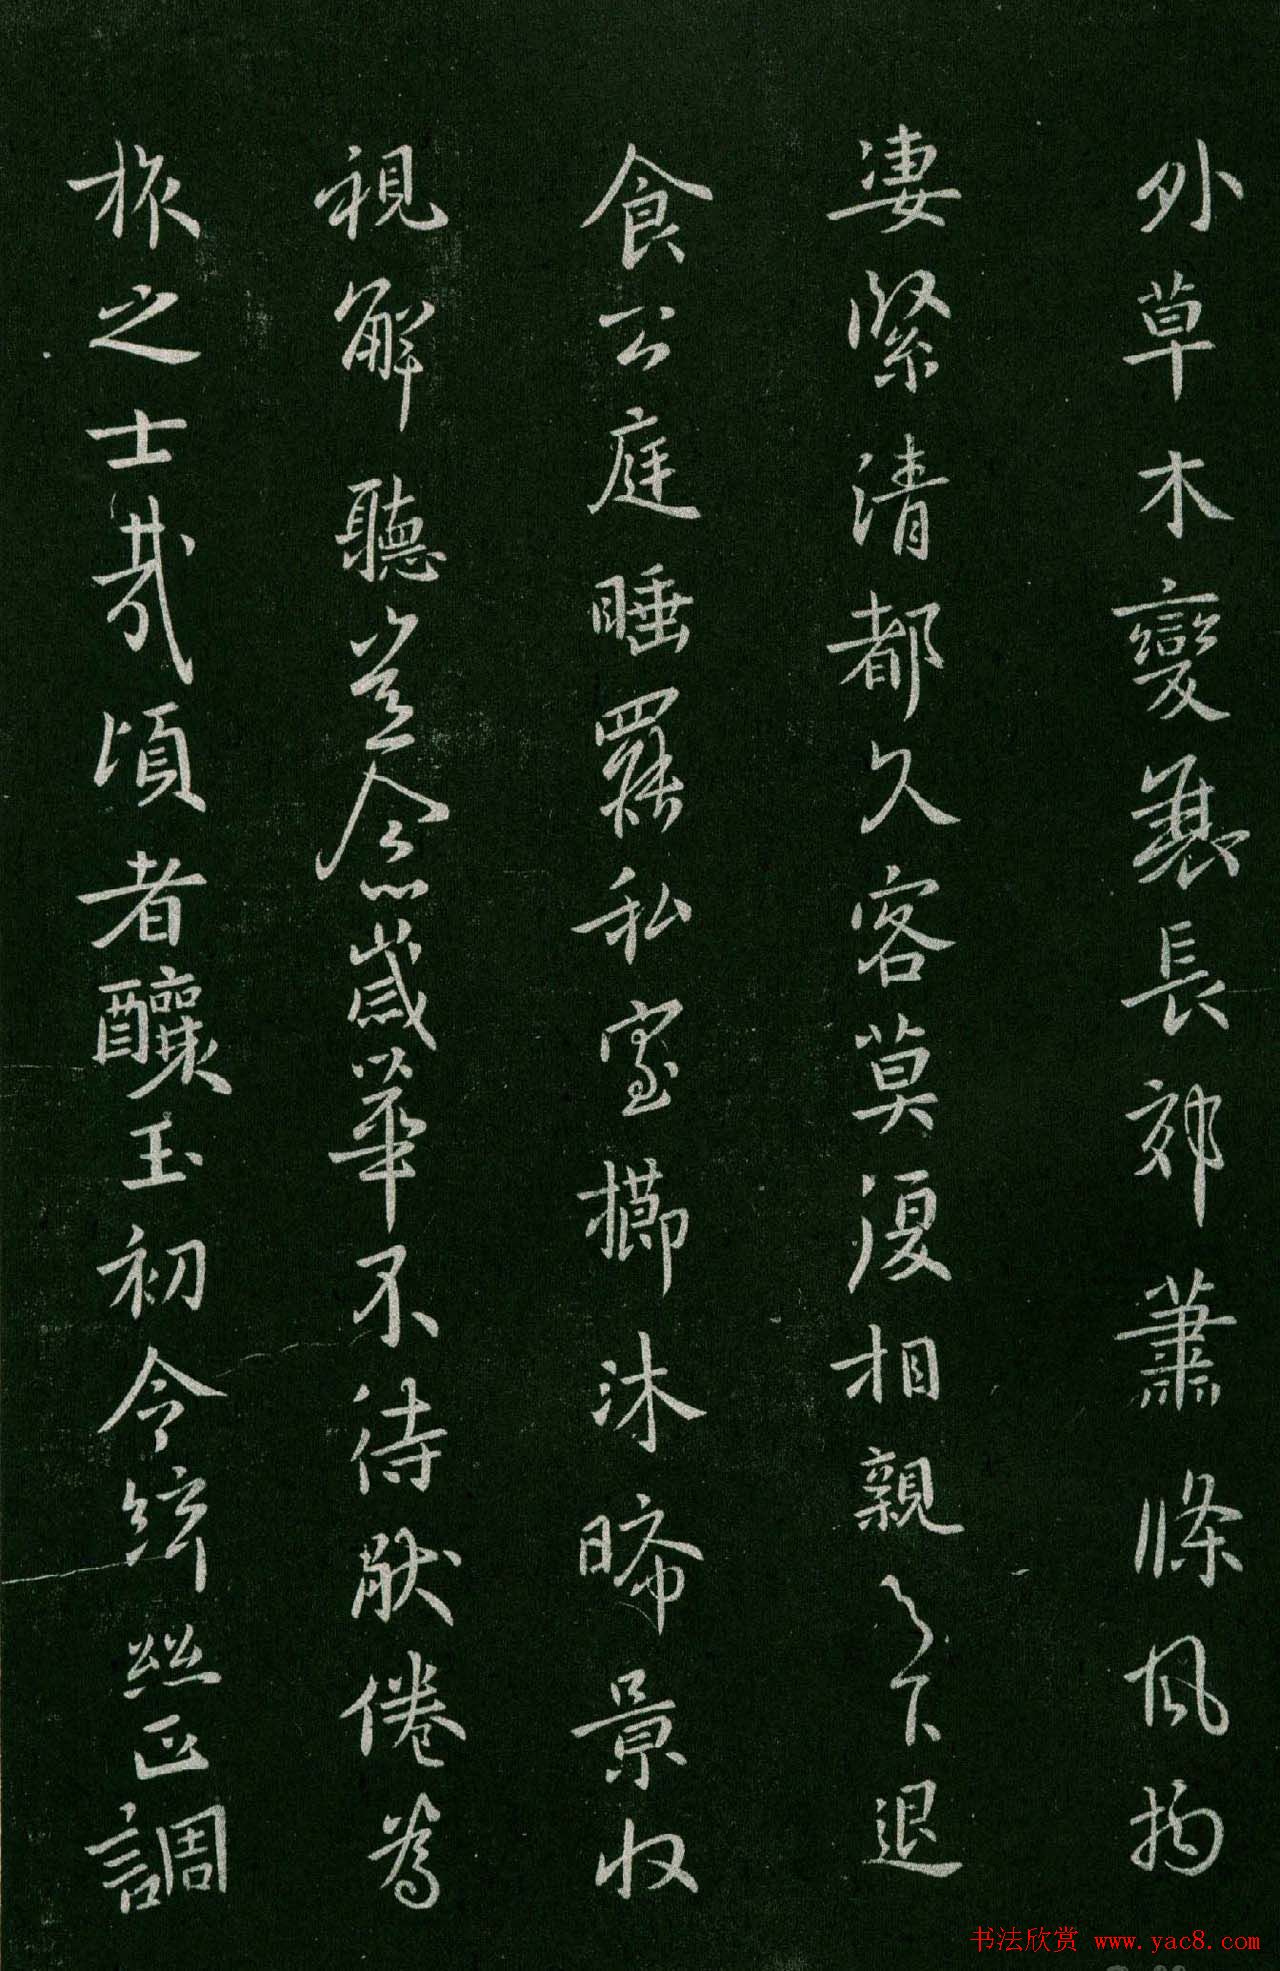 外草木變衰長郊蕭條風物
淒緊清都久客莫復相親之下退
食公庭睡羅私室擳沐晞景收
視解聽並念歲華不待猒倦為
旅之士哉頃者釀玉初令絃絲正調
书法欣赏 www.yac8.com